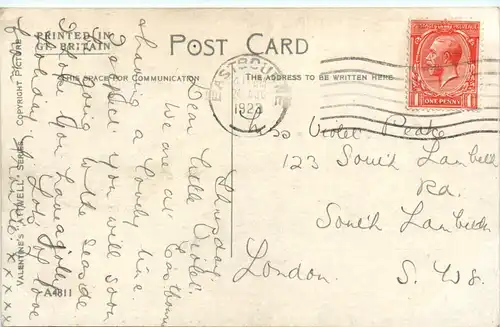 PRINTED IN
GT. BRITAIN
POST CARD
THIS SPACE FOR COMMUNICATION
THE ADDRESS TO BE WRITTEN HERE
EASTBOURNE
1923
ONE PENNY
VALENTINE'S "ATTWELL" SERIES
COPYRIGHT PICTURE
A4811
Thursday
Dear Little Violet.
We are at Eastbourne
having a lovely time.
I expect you will soon
be going to the seaside
I hope you have a jolly
holiday. Lots of love
from
x x x x
Miss Violet Peake
123 South Lambeth
Rd.
South Lambeth
London S. W8.